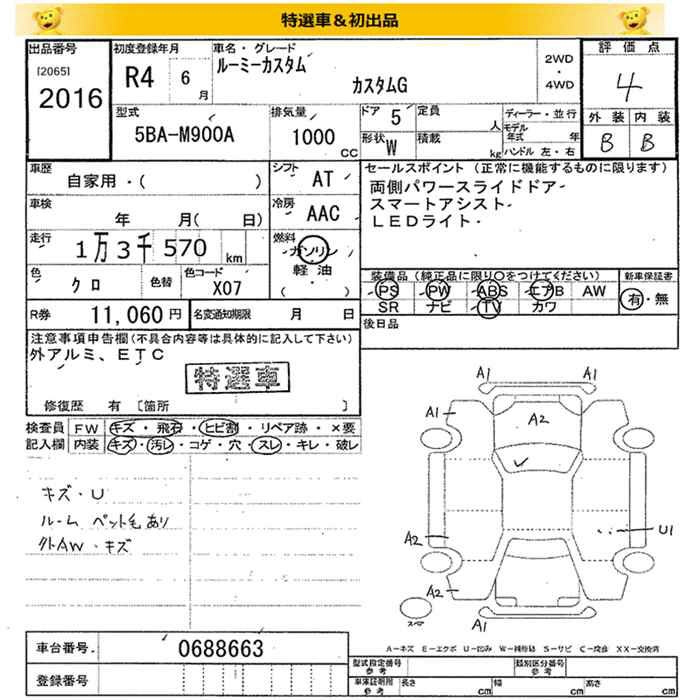 特選車＆初出品
出品番号 初度登録年月 車名・グレード 評価点
[2065] R4 6月 ルーミーカスタム 2WD・4WD 4
2016 カスタムG
型式 排気量 ドア 5 定員 人 ディーラー・並行 外装 内装
5BA-M900A 1000 CC 形状 W 積載 kg モデル年式 年 B B
ハンドル 左・右
車歴 シフト セールスポイント (正常に機能するものに限ります)
自家用・( ) AT 両側パワースライドドア
車検 年 月( 日) 冷房 AAC スマートアシスト
LEDライト
走行 1万3千570 km 燃料 ガソリン
軽油
( )
色 クロ 色替 色コード X07 装備品 (純正品に限り〇をつけてください) 新車保証書
PS PW ABS エアB AW 有・無
SR ナビ TV カワ
R券 11,060円 名変通知期限 月 日 後日品
注意事項申告欄(不具合内容等は具体的に記入して下さい)
外アルミ、ETC
特選車
修復歴 有 [箇所 ]
検査員記入欄 FW キズ・飛石・ヒビ割・リペア跡・×要
内装 キズ・汚レ・コゲ・穴・スレ・キレ・破レ
キズ・U
ルーム ペット毛あり
外AW・キズ
A1 A1
A1 A2 A1
A2 U1
A2
A1
A-キズ E-エクボ U-凹み W-補修跡 S-サビ C-腐食 XX-交換済
車台番号 0688663
登録番号
型式指定番号 参考 類別区分番号 参考
車庫証明用 参考 長さ cm 幅 cm 高さ cm